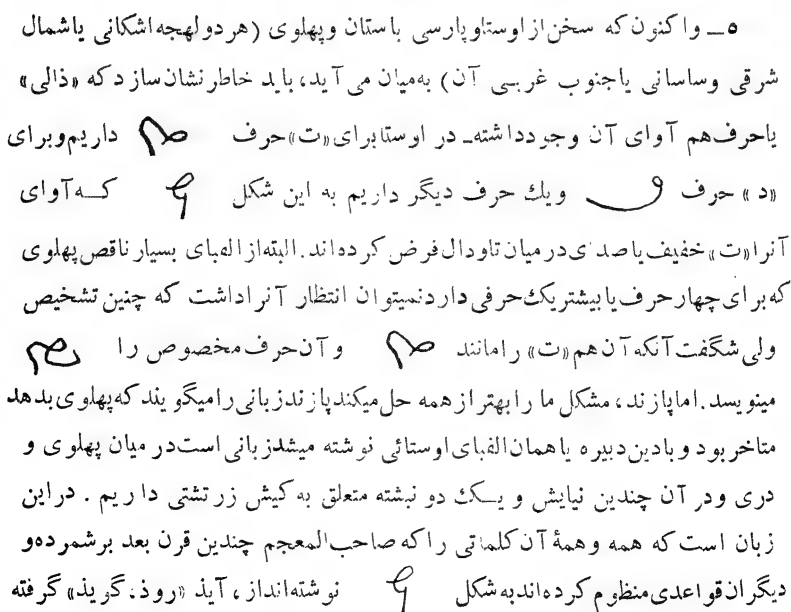 ۵ــ واکنون که سخن از اوستا و پارسی باستان و پهلوی (هر دو لهجه اشکانی یا شمال
شرقی و ساسانی یا جنوب غربی آن) به میان می‌آید، باید خاطر نشان سازد که «ذالی»
یا حرف هم آوای آن وجود داشته. در اوستا برای «ت» حرف داریم و برای
«د» حرف و یک حرف دیگر داریم به این شکل که آوای
آنرا «ت» خفیف یا صدای در میان تا و دال فرض کرده‌اند. البته از الفبای بسیار ناقص پهلوی
که برای چهار حرف یا بیشتر یک حرفی دارد نمیتوان انتظار آنرا داشت که چنین تشخیص
ولی شگفت آنکه آن هم «ت» را مانند و آن حرف مخصوص را
مینویسد. اما پازند، مشکل ما را بهتر از همه حل میکند پازند زبانی را میگویند که پهلوی بدهد
متاخر بود و با دین دبیره یا همان الفبای اوستائی نوشته میشد زبانی است در میان پهلوی و
دری و در آن چندین نیایش و یک دو نبشته متعلق به کیش زرتشتی داریم. در این
زبان است که همه و همهٔ آن کلماتی را که صاحب المعجم چندین قرن بعد بر شمرده و
دیگران قواعدی منظوم کرده‌اند به شکل نوشته‌اند از، آیذ «روذ. گویذ» گرفته